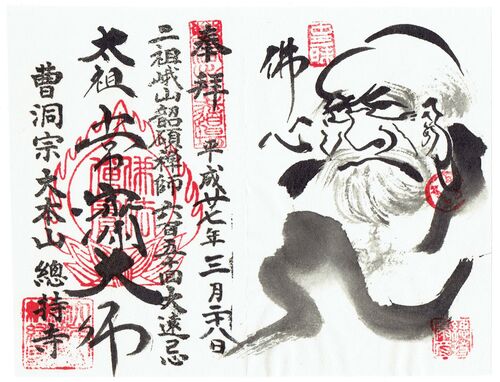 佛心
奉拜
平成廿七年三月二十八日
二祖峨山韶碩禅師六百五十回大遠忌
太祖常済大师
曹洞宗大本山總持寺